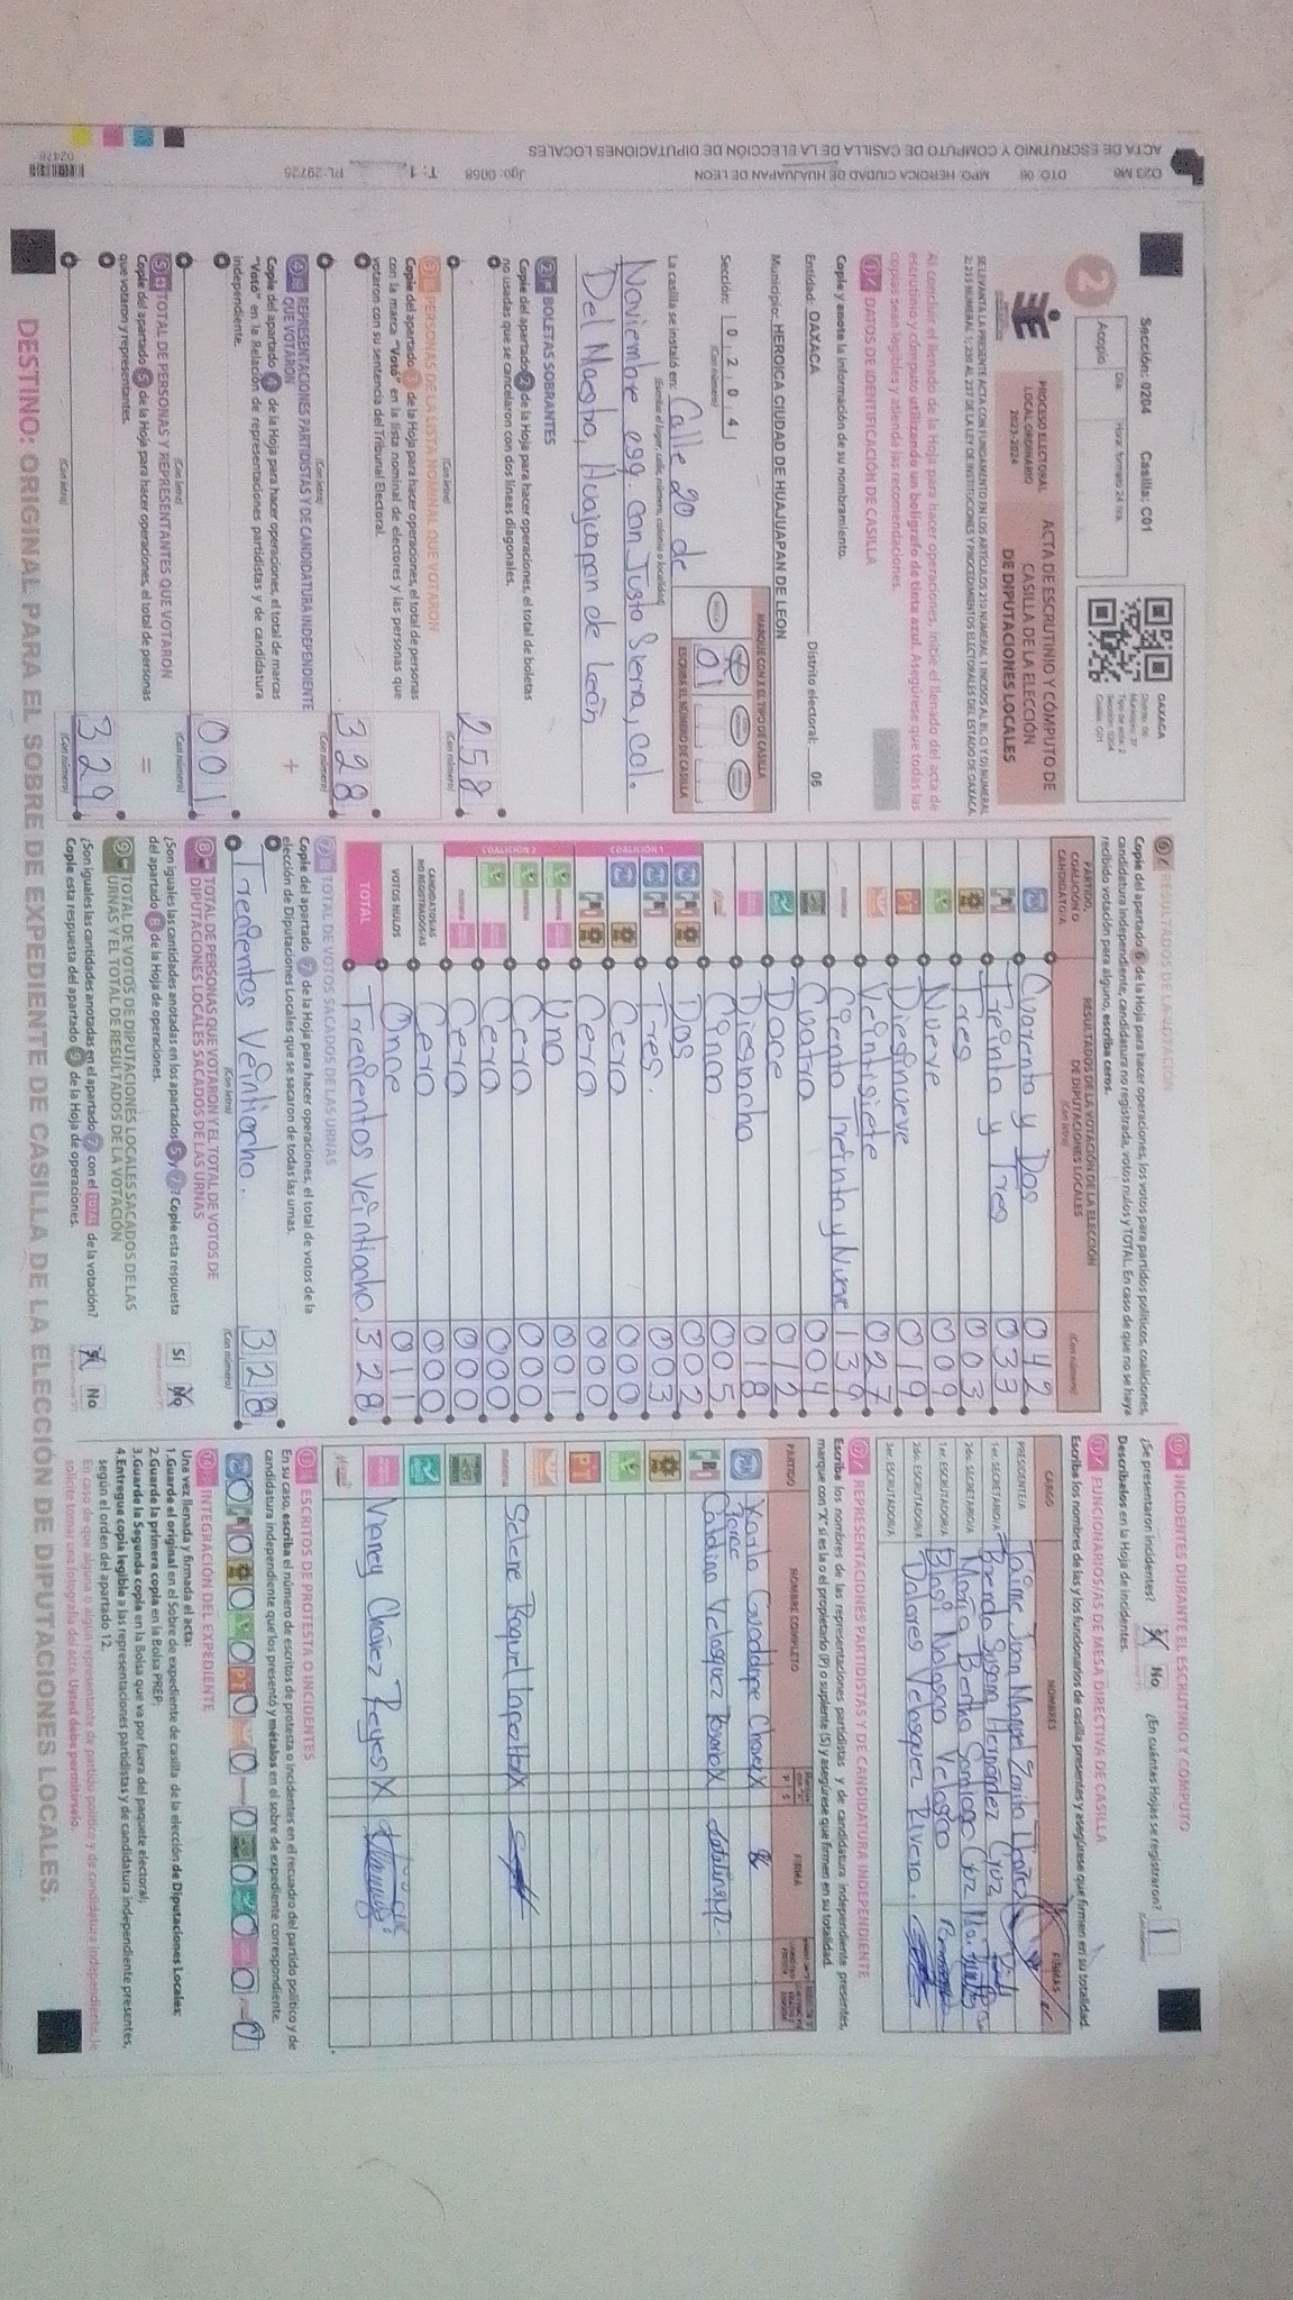 Sección: 0204 Casilla: C01
Día: Hora: formato 24 hrs.
2 Acopió
OAXACA
Distrito: 06
Municipio: 37
Tipo de acta: 2
Sección: 0204
Casilla: C01
PROCESO ELECTORAL
LOCAL ORDINARIO
2023-2024
ACTA DE ESCRUTINIO Y CÓMPUTO DE
CASILLA DE LA ELECCIÓN
DE DIPUTACIONES LOCALES
Al concluir el llenado de la Hoja para hacer operaciones, inicie el llenado del acta de
escrutinio y cómputo utilizando un bolígrafo de tinta azul. Asegúrese que todas las
copias sean legibles y atienda las recomendaciones.
1 DATOS DE IDENTIFICACIÓN DE CASILLA
Copie y anote la información de su nombramiento.
Entidad: OAXACA Distrito electoral: 06
Municipio: HEROICA CIUDAD DE HUAJUAPAN DE LEON
Sección: 0 2 0 4
(Con número)
MARQUE CON X EL TIPO DE CASILLA
ESCRIBA EL NÚMERO DE CASILLA
01
La casilla se instaló en: Calle 20 de
(Escriba el lugar, calle, número, colonia o localidad)
Noviembre esq. con Justo Sierra, Col.
Del Maestro, Huajuapan de León
2 BOLETAS SOBRANTES
Copie del apartado 2 de la Hoja para hacer operaciones, el total de boletas
no usadas que se cancelaron con dos líneas diagonales.
258
(Con letra) (Con número)
3 PERSONAS DE LA LISTA NOMINAL QUE VOTARON
Copie del apartado 3 de la Hoja para hacer operaciones, el total de personas
con la marca "Votó" en la lista nominal de electores y las personas que
votaron con su sentencia del Tribunal Electoral.
328
(Con letra) (Con número)
4 REPRESENTACIONES PARTIDISTAS Y DE CANDIDATURA INDEPENDIENTE
QUE VOTARON
+
Copie del apartado 4 de la Hoja para hacer operaciones, el total de marcas
"Votó" en la Relación de representaciones partidistas y de candidatura
independiente.
001
(Con letra) (Con número)
5 TOTAL DE PERSONAS Y REPRESENTANTES QUE VOTARON
=
Copie del apartado 5 de la Hoja para hacer operaciones, el total de personas
que votaron y representantes.
329
(Con letra) (Con número)
6 RESULTADOS DE LA VOTACIÓN
Copie del apartado 6 de la Hoja para hacer operaciones, los votos para partidos políticos, coaliciones,
candidatura independiente, candidatura no registrada, votos nulos y TOTAL. En caso de que no se haya
recibido votación para alguno, escriba ceros.
PARTIDO,
COALICIÓN O
CANDIDATO/A
RESULTADOS DE LA VOTACIÓN DE LA ELECCIÓN
DE DIPUTACIONES LOCALES
(Con letra) (Con número)
Cuarenta y Dos 042
Treinta y Tres 033
Tres 003
Nueve 009
PT Diesinueve 019
Veintisiete 027
morena Ciento treinta y Nueve 139
Cuatro 004
Doce 012
Diesiocho 018
Cinco 005
COALICIÓN 1
Dos 002
Tres. 003
Cero 000
Cero 000
COALICIÓN 2
Uno 001
Cero 000
Cero 000
Cero 000
CANDIDATOS/AS
NO REGISTRADOS/AS Cero 000
VOTOS NULOS Once 011
TOTAL Trecientos Veintiocho. 328
7 TOTAL DE VOTOS SACADOS DE LAS URNAS
Copie del apartado 7 de la Hoja para hacer operaciones, el total de votos de la
elección de Diputaciones Locales que se sacaron de todas las urnas.
Trecientos Veintiocho. 328
(Con letra) (Con número)
8 TOTAL DE PERSONAS QUE VOTARON Y EL TOTAL DE VOTOS DE
DIPUTACIONES LOCALES SACADOS DE LAS URNAS
¿Son iguales las cantidades anotadas en los apartados 5 y 7? Copie esta respuesta
del apartado 8 de la Hoja de operaciones.
Sí No
9 TOTAL DE VOTOS DE DIPUTACIONES LOCALES SACADOS DE LAS
URNAS Y EL TOTAL DE RESULTADOS DE LA VOTACIÓN
¿Son iguales las cantidades anotadas en el apartado 7 con el TOTAL de la votación?
Copie esta respuesta del apartado 9 de la Hoja de operaciones.
Sí No
10 INCIDENTES DURANTE EL ESCRUTINIO Y CÓMPUTO
¿Se presentaron incidentes? Sí No ¿En cuántas Hojas se registraron? 1
Descríbalos en la Hoja de incidentes.
11 FUNCIONARIOS/AS DE MESA DIRECTIVA DE CASILLA
Escriba los nombres de las y los funcionarios de casilla presentes y asegúrese que firmen en su totalidad.
CARGO NOMBRES FIRMAS
PRESIDENTE/A Jaime Juan Manuel Zurita Ibañez
1er. SECRETARIO/A Brenda Susana Hernández Cruz
2do. SECRETARIO/A María Bertha Santiago Cruz
1er. ESCRUTADOR/A Blasi Nolasco Velasco
2do. ESCRUTADOR/A Dolores Velasquez Rivera.
3er. ESCRUTADOR/A
12 REPRESENTACIONES PARTIDISTAS Y DE CANDIDATURA INDEPENDIENTE
Escriba los nombres de las representaciones partidistas y de candidatura independiente presentes,
marque con "X" si es la o el propietario (P) o suplente (S) y asegúrese que firmen en su totalidad.
PARTIDO NOMBRE COMPLETO P S FIRMA
Karla Guadalupe Chavez X
Catalina Velasquez Rosario X
PT
morena Selene Raquel Lopez X
Vianey Chávez Reyes X
13 ESCRITOS DE PROTESTA O INCIDENTES
En su caso, escriba el número de escritos de protesta o incidentes en el recuadro del partido político y de
candidatura independiente que los presentó y métalos en el sobre de expediente correspondiente.
0 0 0 0 PT 0 0 0 0 0 0 0
14 INTEGRACIÓN DEL EXPEDIENTE
Una vez llenada y firmada el acta:
1.Guarde el original en el Sobre de expediente de casilla de la elección de Diputaciones Locales;
2.Guarde la primera copia en la Bolsa PREP;
3.Guarde la Segunda copia en la Bolsa que va por fuera del paquete electoral;
4.Entregue copia legible a las representaciones partidistas y de candidatura independiente presentes,
según el orden del apartado 12.
DESTINO: ORIGINAL PARA EL SOBRE DE EXPEDIENTE DE CASILLA DE LA ELECCIÓN DE DIPUTACIONES LOCALES.
ACTA DE ESCRUTINIO Y CÓMPUTO DE CASILLA DE LA ELECCIÓN DE DIPUTACIONES LOCALES
DTO: 06 MPO: HEROICA CIUDAD DE HUAJUAPAN DE LEON Jgo: 0068 T: 1 PL: 29725
02478